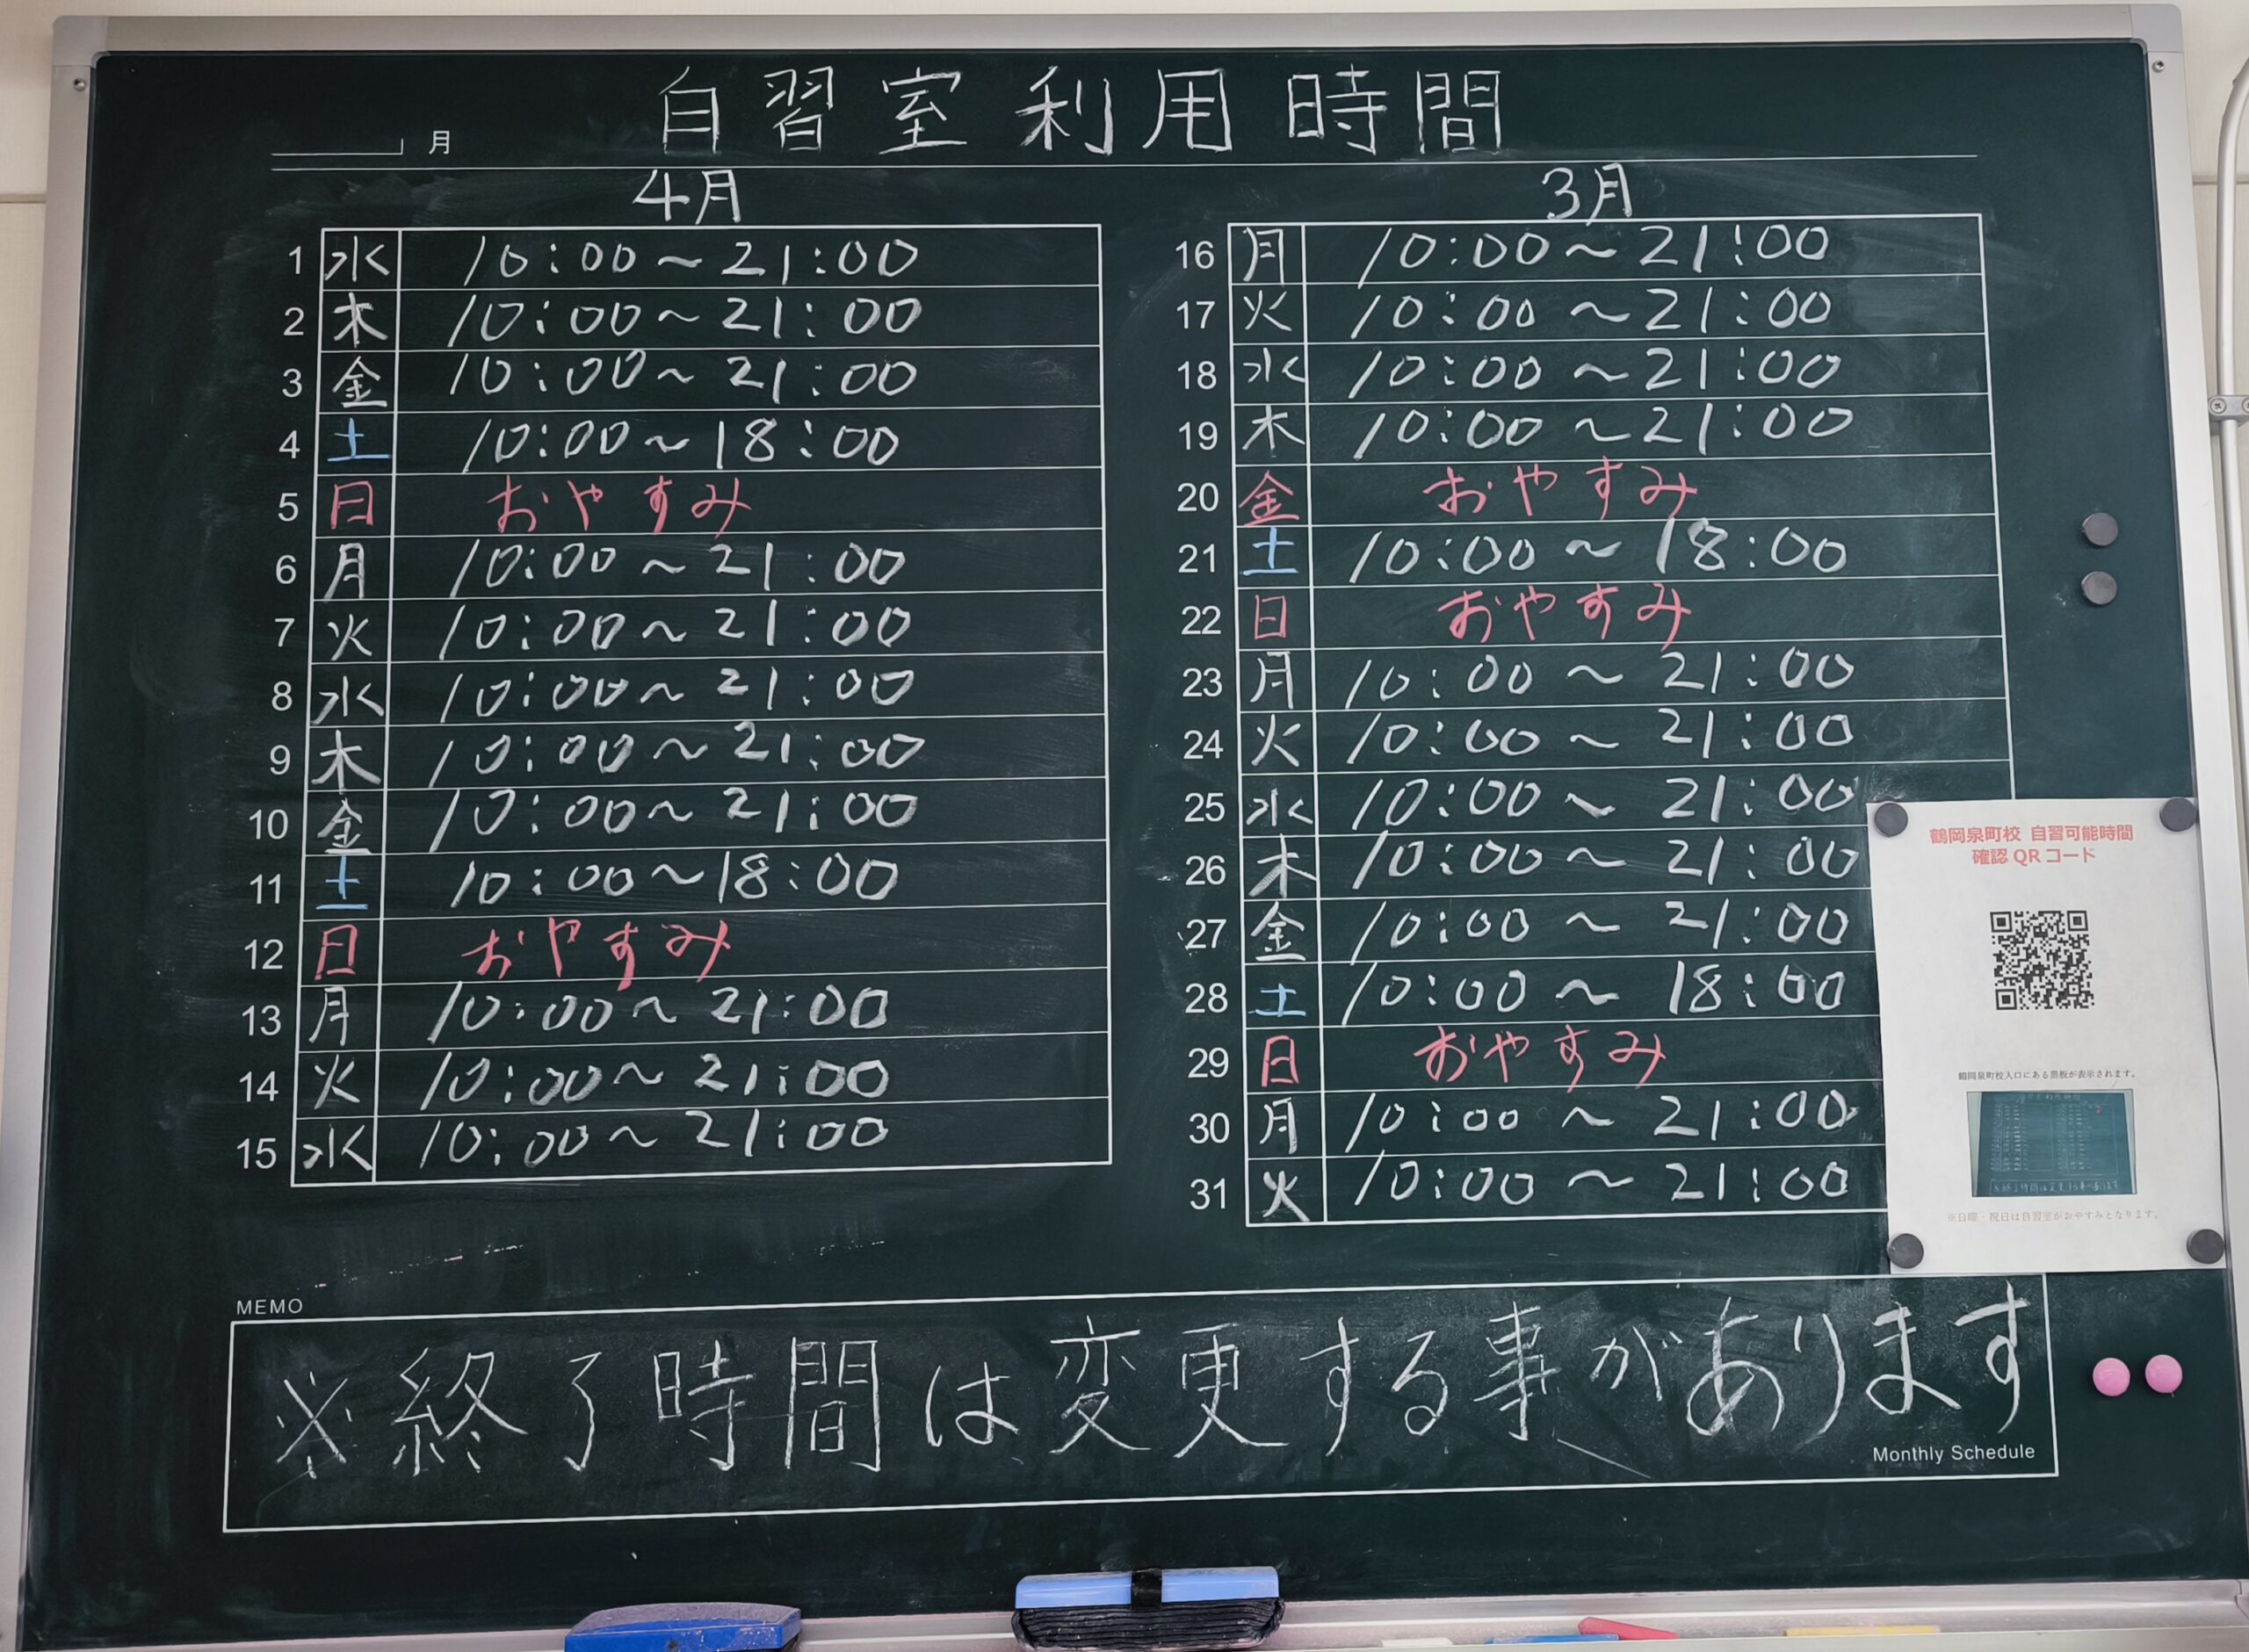 自習室利用時間
月
4月
1 水 10:00～21:00
2 木 10:00～21:00
3 金 10:00～21:00
4 土 10:00～18:00
5 日 おやすみ
6 月 10:00～21:00
7 火 10:00～21:00
8 水 10:00～21:00
9 木 10:00～21:00
10 金 10:00～21:00
11 土 10:00～18:00
12 日 おやすみ
13 月 10:00～21:00
14 火 10:00～21:00
15 水 10:00～21:00
3月
16 月 10:00～21:00
17 火 10:00～21:00
18 水 10:00～21:00
19 木 10:00～21:00
20 金 おやすみ
21 土 10:00～18:00
22 日 おやすみ
23 月 10:00～21:00
24 火 10:00～21:00
25 水 10:00～21:00
26 木 10:00～21:00
27 金 10:00～21:00
28 土 10:00～18:00
29 日 おやすみ
30 月 10:00～21:00
31 火 10:00～21:00
鶴岡泉町校 自習可能時間
確認QRコード
鶴岡泉町校入口にある黒板が表示されます。
※日曜・祝日は自習室がおやすみとなります。
MEMO
※終了時間は変更する事があります
Monthly Schedule